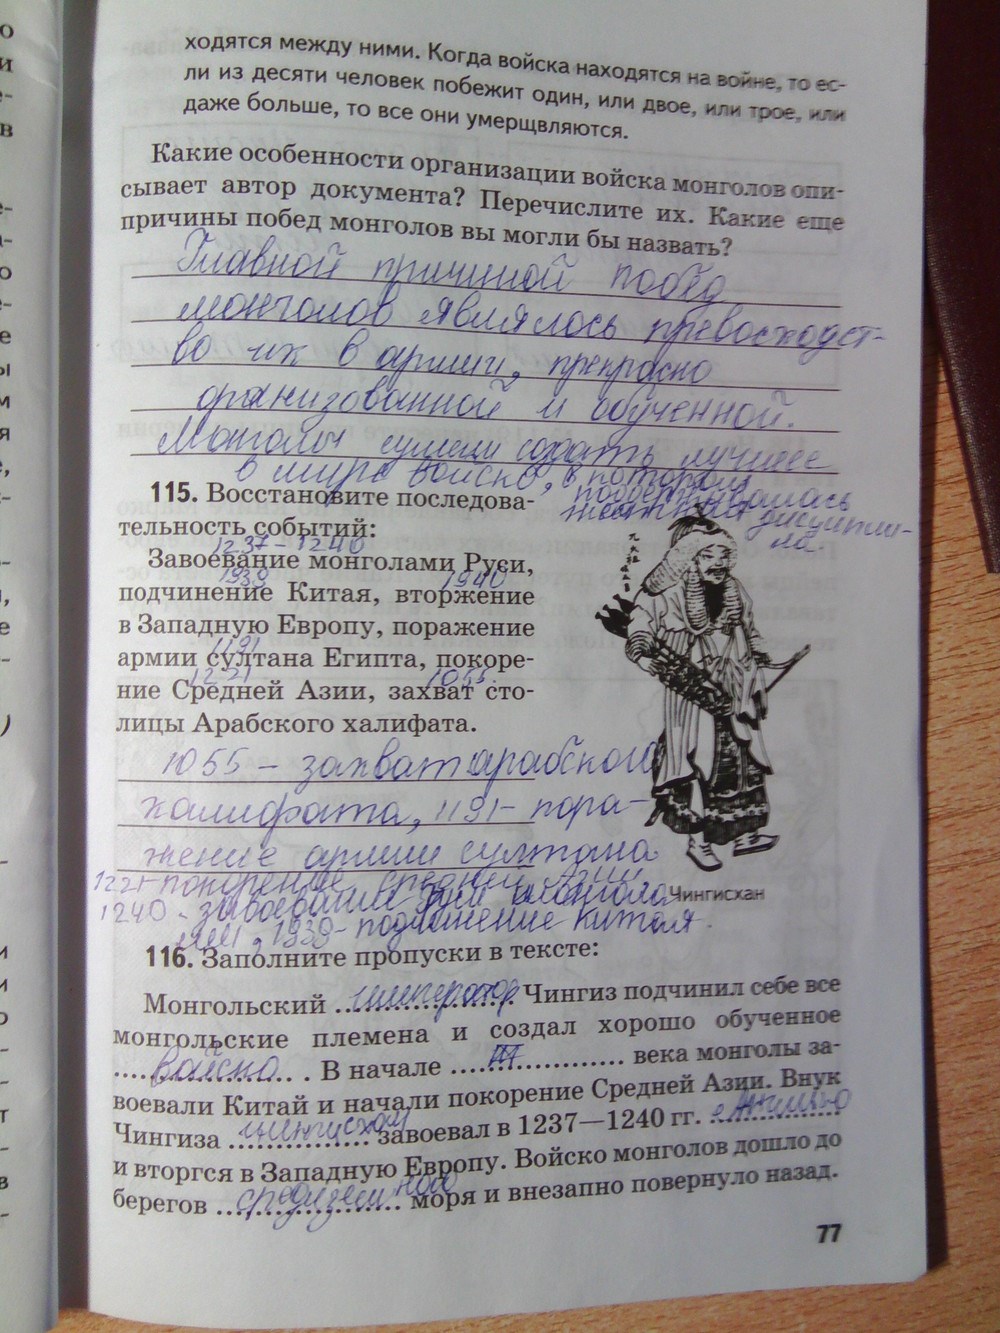 ходятся между ними. Когда войска находятся на войне, то ес-
ли из десяти человек побежит один, или двое, или трое, или
даже больше, то все они умерщвляются.
Какие особенности организации войска монголов опи-
сывает автор документа? Перечислите их. Какие еще
причины побед монголов вы могли бы назвать?
Главной причиной побед
монголов являлось превосходст-
во их в армии, прекрасно
организованной и обученной.
Монголы сумели создать лучшее
в мире войско, в котором
поддерживалась
дисципли-
на.
115. Восстановите последова-
тельность событий:
1237-1240
Завоевание монголами Руси,
1939 1940
подчинение Китая, вторжение
в Западную Европу, поражение
1191
армии султана Египта, покоре-
1221 1055
ние Средней Азии, захват сто-
лицы Арабского халифата.
1055 – захват арабского
халифата, 1191- пора-
жение армии султана
1221- покорение средней Азии
1240 - завоевание Руси монгола
ми, 1939- подчинение Китая.
Чингисхан
116. Заполните пропуски в тексте:
Монгольский император Чингиз подчинил себе все
монгольские племена и создал хорошо обученное
войско. В начале века монголы за-
воевали Китай и начали покорение Средней Азии. Внук
Чингиза чингисхан завоевал в 1237—1240 гг.
и вторгся в Западную Европу. Войско монголов дошло до
берегов средиземного моря и внезапно повернуло назад.
77